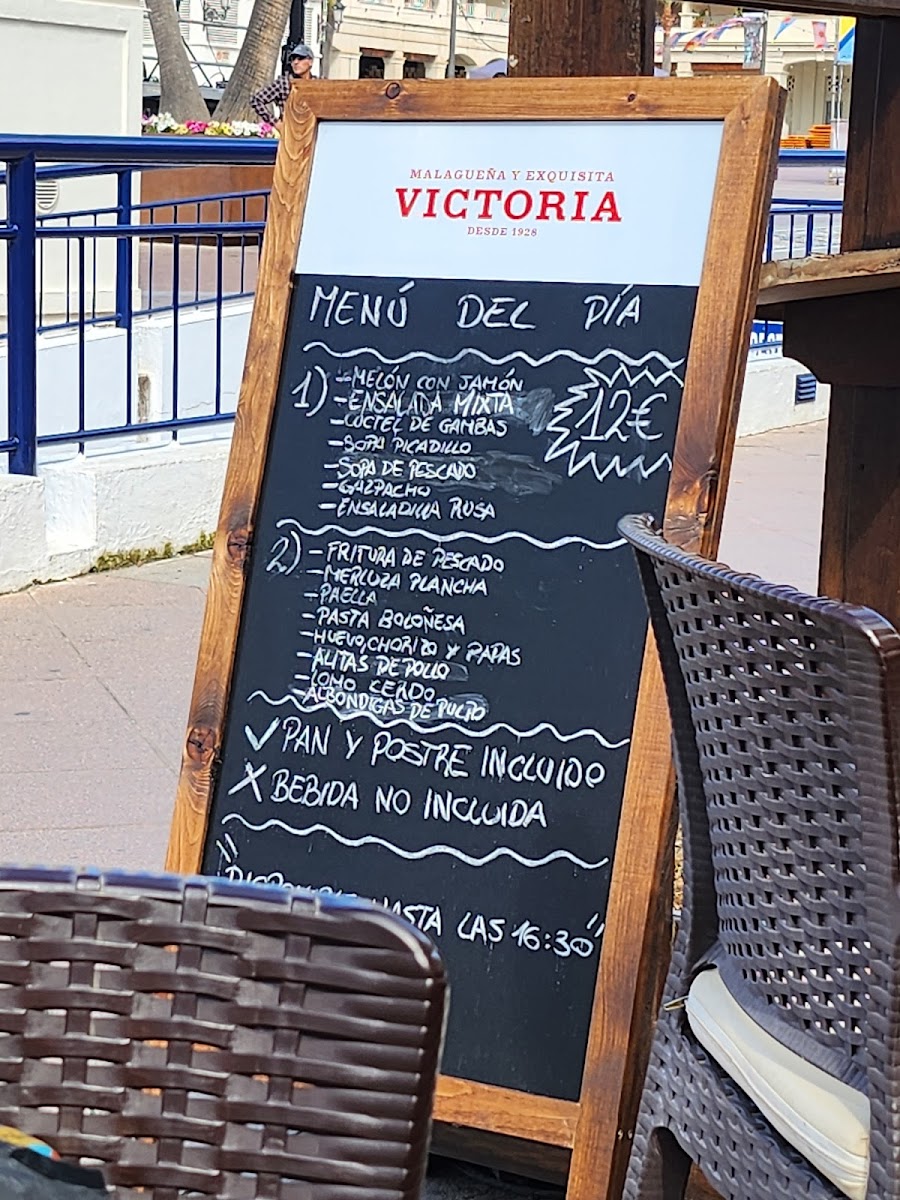 MALAGUEÑA Y EXQUISITA
VICTORIA
DESDE 1928
MENÚ DEL DÍA
1) - MELÓN CON JAMÓN
- ENSALADA MIXTA
- CÓCTEL DE GAMBAS
- SOPA PICADILLO
- SOPA DE PESCADO
- GAZPACHO
- ENSALADILLA RUSA
12€
2) - FRITURA DE PESCADO
- MERLUZA PLANCHA
- PAELLA
- PASTA BOLOÑESA
- HUEVO, CHORIZO Y PAPAS
- ALITAS DE POLLO
- LOMO CERDO
- ALBONDIGAS DE PULPO
✓ PAN Y POSTRE INCLUIDO
X BEBIDA NO INCLUIDA
" HASTA LAS 16:30"